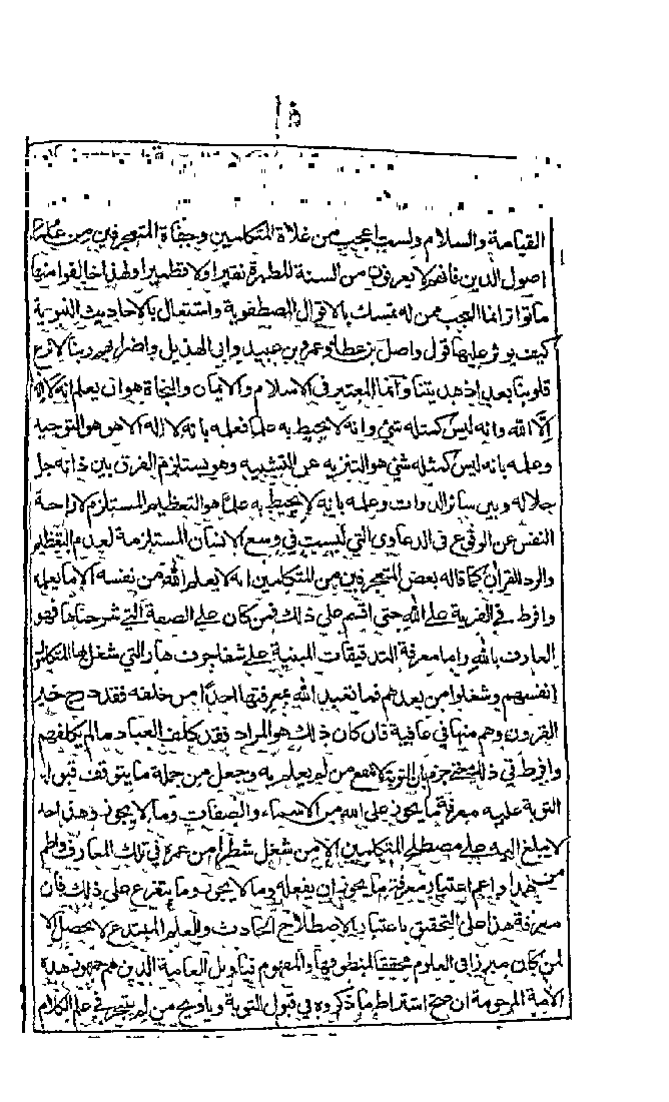 القيامة والسلام ولست اعجب من غلاة المتكلمين وجفاة المتعجرفين من علماء
اصول الدين فانهم لا يعرفون من السنة المطهرة نقيرا ولا قطميرا ولهذا خالفوا منها
ما تواتر انما العجب ممن له تمسك بالاقوال المصطفوية واشتغال بالاحاديث النبوية
كيف يوثر عليها قول واصل بن عطا وعمرو بن عبيد وابي الهذيل واضرابهم ربنا لا تزغ
قلوبنا بعد اذ هديتنا وانما المعتبر في الاسلام والايمان والنجاة هو ان يعلم انه لا اله
الا الله وانه ليس كمثله شيء وانه لا يحيط به علما فعلمه بانه لا اله الا هو هو التوحيد
وعلمه بانه ليس كمثله شي هو التنزيه عن التشبيه وهو يستلزم الفرق بين ذاته جل
جلاله وبين سائر الذوات وعلمه بانه لا يحيط به علما هو التعظيم المستلزم لازاحة
النفس عن الوقوع في الدعاوى التي ليست في وسع الانسان المستلزمة لعدم التعظيم
والرد للقران كما قاله بعض المتعجرفين من المتكلمين انه لا يعلم الله من نفسه الا ما يعلمه
وافرط في الفرية على الله حتى اقسم على ذلك فمن كان على الصفة التي شرحناها فهو
العارف بالله واما معرفة التدقيقات المبنية على شفا جرف هار التي شغل بها المتكلمون
انفسهم وشغلوا من بعدهم فما تعبد الله بمعرفتها احدا من خلقه فقد درج خير
القرون وهم منها في عافية فان كان ذلك هو المراد فقد كلف العباد ما لم يكلفهم
وافرط في ذلك حتى جزم بان التوبة لا تنفع من لم يعلم به وجعل من جملة ما يتوقف قبول
التوبة عليه معرفة ما يجوز على الله من الاسماء والصفات وما لا يجوز وهذا احد
لا يبلغ اليه على مصطلح المتكلمين الا من شغل شطرا من عمره في تلك المعارف واطم
من هذا واعم اعتبار معرفة ما يجوز ان يفعله وما لا يجوز وما يتفرع على ذلك فان
معرفة هذا على التحقيق باعتبار الاصطلاح الحادث والعلم المبتدع لا يحصل الا
لمن كان مبرزا في العلوم محققا لمنطوقها والمفهوم فيا ويل العامة الذين هم جمهور هذه
الامة المرحومة ان صح اشتراط ما ذكروه في قبول التوبة ويا ويح من لم يتبحر في علم الكلام